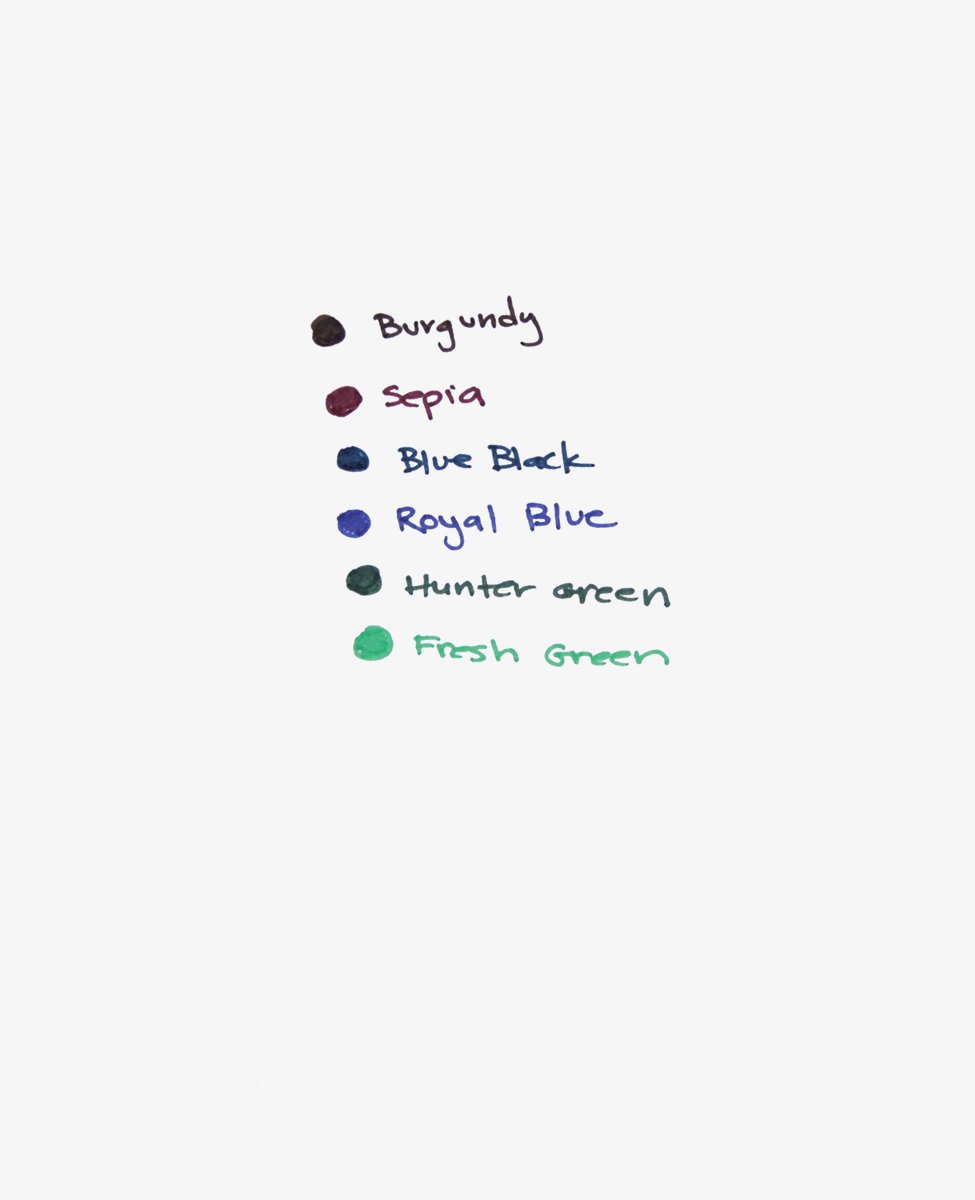 Burgundy
Sepia
Blue Black
Royal Blue
Hunter Green
Fresh Green